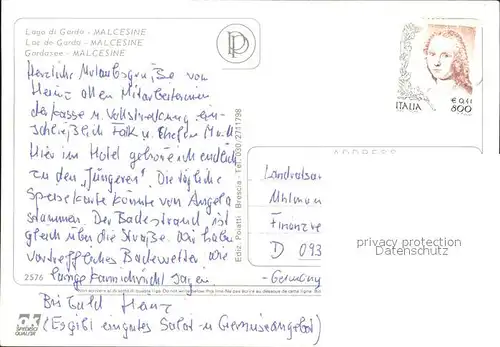 Lago di Garda - MALCESINE
Lac de Garda - MALCESINE
Gardasee - MALCESINE
Herzliche Urlaubsgrüße von
Heinz allen Mitarbeiterinnen
der Kasse u. Vollstreckung ein-
schließlich Falk u.
Hier im Hotel gehöre ich endlich
zu den „Jüngeren“. Die tägliche
Speisekarte könnte von Angela
stammen. Der Badestrand ist
gleich über die Straße. Wir haben
vortreffliches Badewetter wie
lange nicht
Bis bald Heinz
(Es gibt ein gutes Salat- u Gemüseangebot)
2576
Ediz. Poiatti - Brescia - Tel. 030/2711798
ITALIA
€ 0,41
800
ADDRESS
Landratsa
Finanzve
D 093
-Germany
privacy protection
Datenschutz
OK
SPECIMEN
QUALITÀ